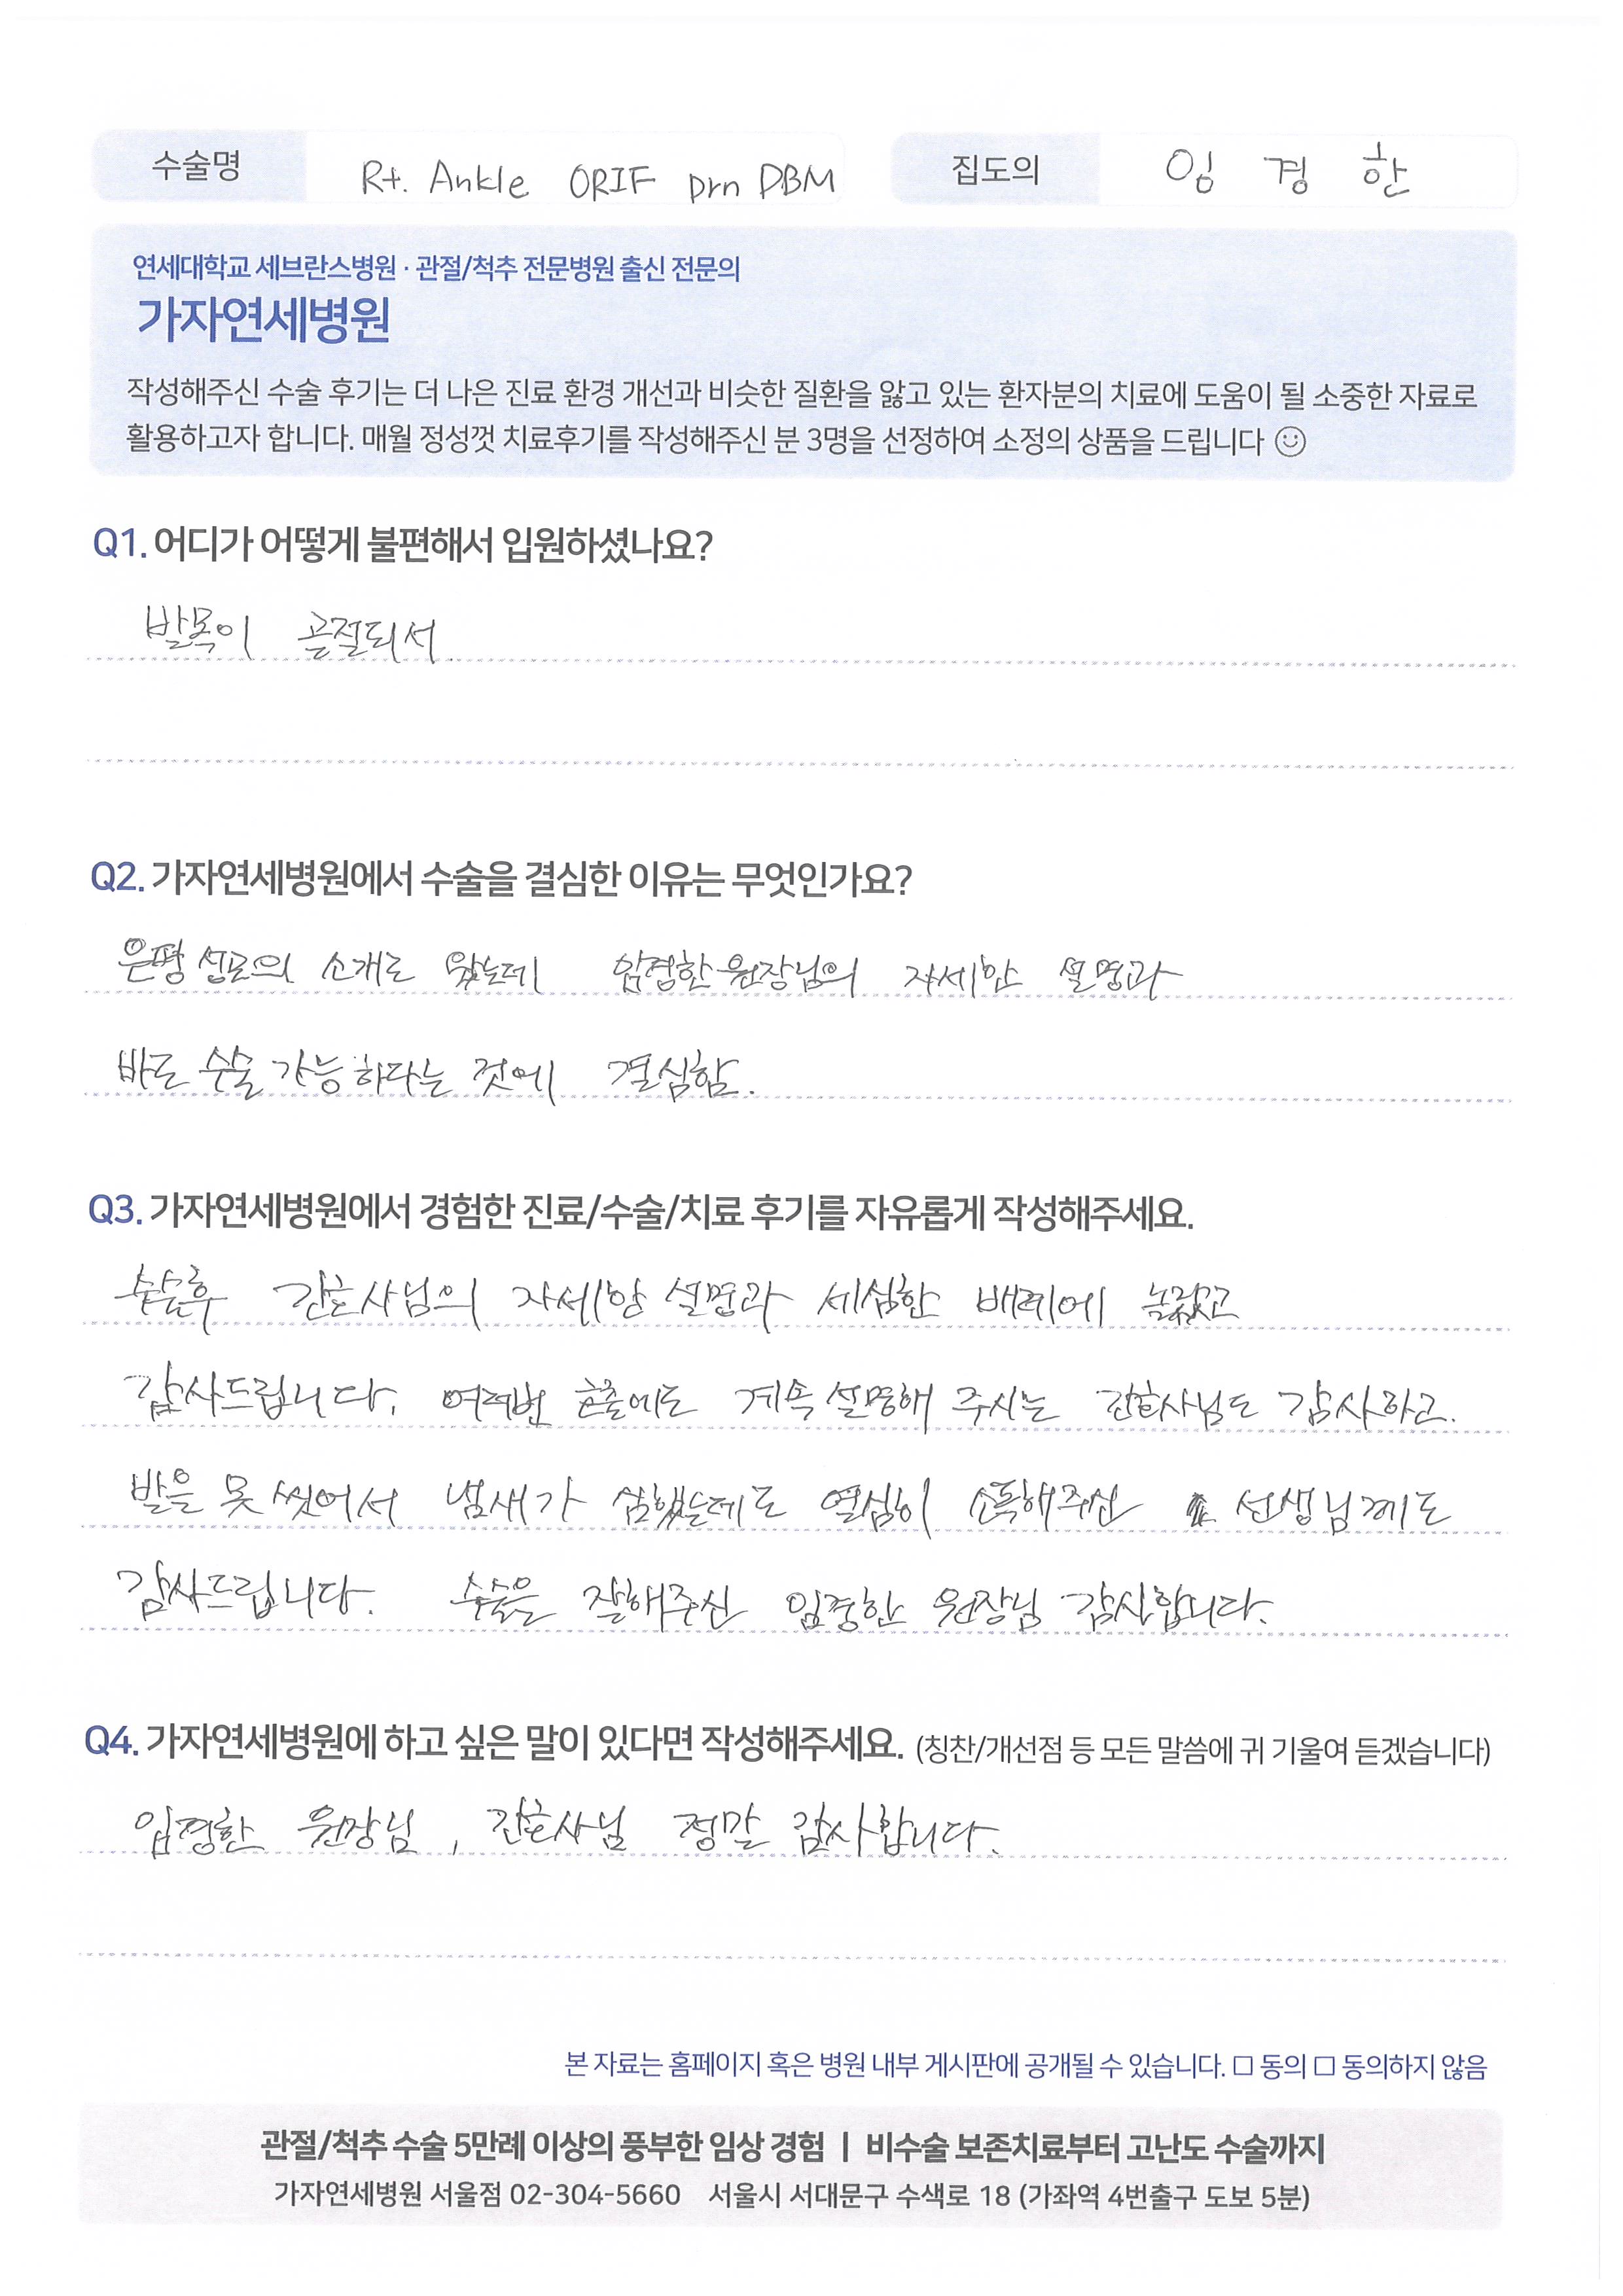 수술명 Rt. Ankle ORIF prn DBM 집도의 임 경 한
연세대학교 세브란스병원 · 관절/척추 전문병원 출신 전문의
가자연세병원
작성해주신 수술 후기는 더 나은 진료 환경 개선과 비슷한 질환을 앓고 있는 환자분의 치료에 도움이 될 소중한 자료로
활용하고자 합니다. 매월 정성껏 치료후기를 작성해주신 분 3명을 선정하여 소정의 상품을 드립니다
Q1. 어디가 어떻게 불편해서 입원하셨나요?
발목이 골절되서
Q2. 가자연세병원에서 수술을 결심한 이유는 무엇인가요?
은평 성모의 소개로 왔는데 임경한 원장님의 자세한 설명과
바로 수술 가능하다는 것에 결심함.
Q3. 가자연세병원에서 경험한 진료/수술/치료 후기를 자유롭게 작성해주세요.
수술후 간호사님의 자세한 설명과 세심한 배려에 놀랐고
감사드립니다. 여러번 호출에도 계속 설명해 주시는 간호사님도 감사하고.
발을 못 씻어서 냄새가 심했는데도 열심히 소독해주신 선생님께도
감사드립니다. 수술을 잘해주신 임경한 원장님 감사합니다.
Q4. 가자연세병원에 하고 싶은 말이 있다면 작성해주세요. (칭찬/개선점 등 모든 말씀에 귀 기울여 듣겠습니다)
임경한 원장님, 간호사님 정말 감사합니다.
본 자료는 홈페이지 혹은 병원 내부 게시판에 공개될 수 있습니다. □ 동의 □ 동의하지 않음
관절/척추 수술 5만례 이상의 풍부한 임상 경험 | 비수술 보존치료부터 고난도 수술까지
가자연세병원 서울점 02-304-5660 서울시 서대문구 수색로 18 (가좌역 4번출구 도보 5분)